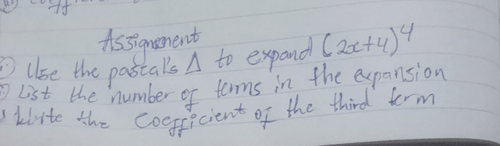 Assignment
Use the pascal's Δ to expand (2x+4)⁴
List the number of terms in the expansion
Write the Coefficient of the third term